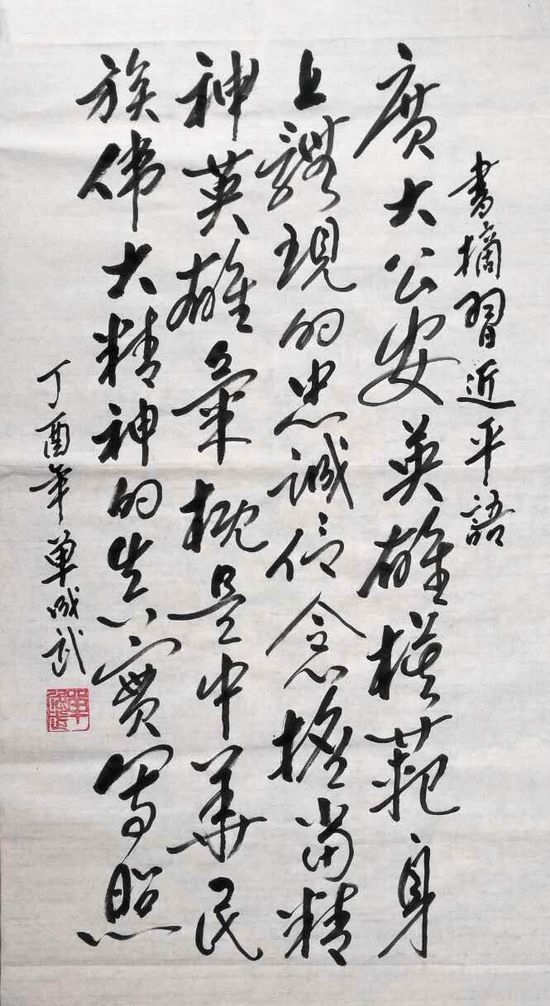 書摘習近平語
廣大公安英雄模范身
上體現的忠誠信念擔當精
神英雄氣概是中華民
族偉大精神的真實寫照
丁酉年單成武